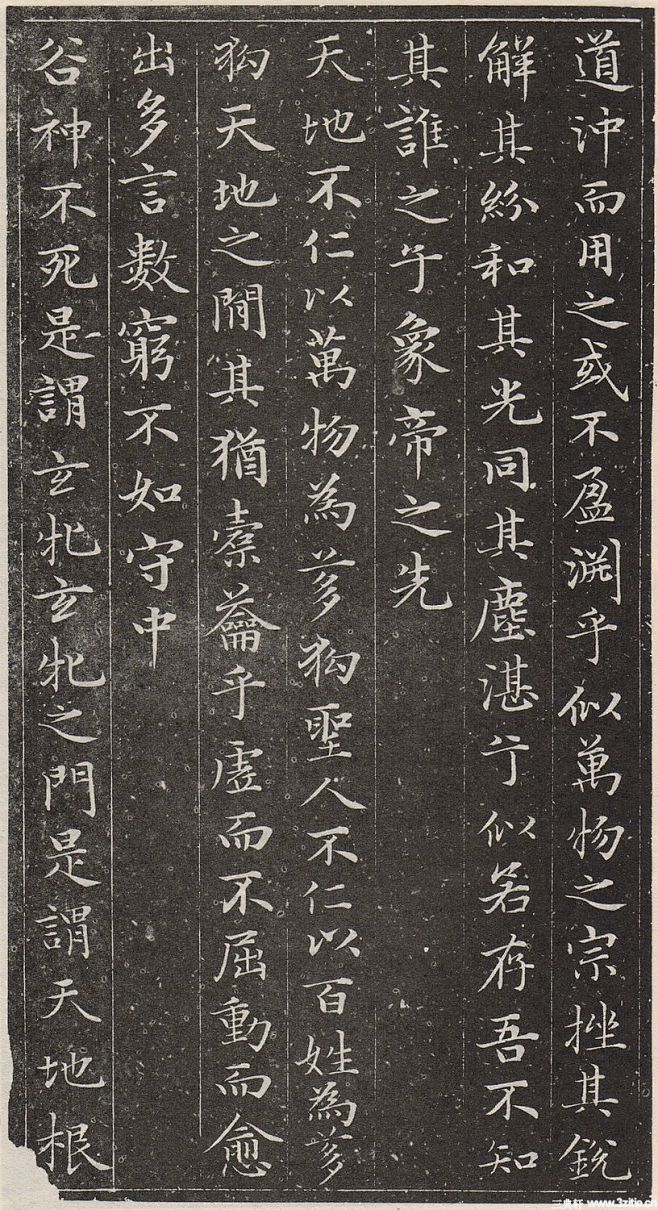 道沖而用之或不盈渊乎似萬物之宗挫其銳
解其紛和其光同其塵湛兮似若存吾不知
其誰之子象帝之先
天地不仁以萬物為芻狗聖人不仁以百姓為芻
狗天地之間其猶橐籥乎虛而不屈動而愈
出多言數窮不如守中
谷神不死是謂玄牝玄牝之門是謂天地根
www.3zitie.cn